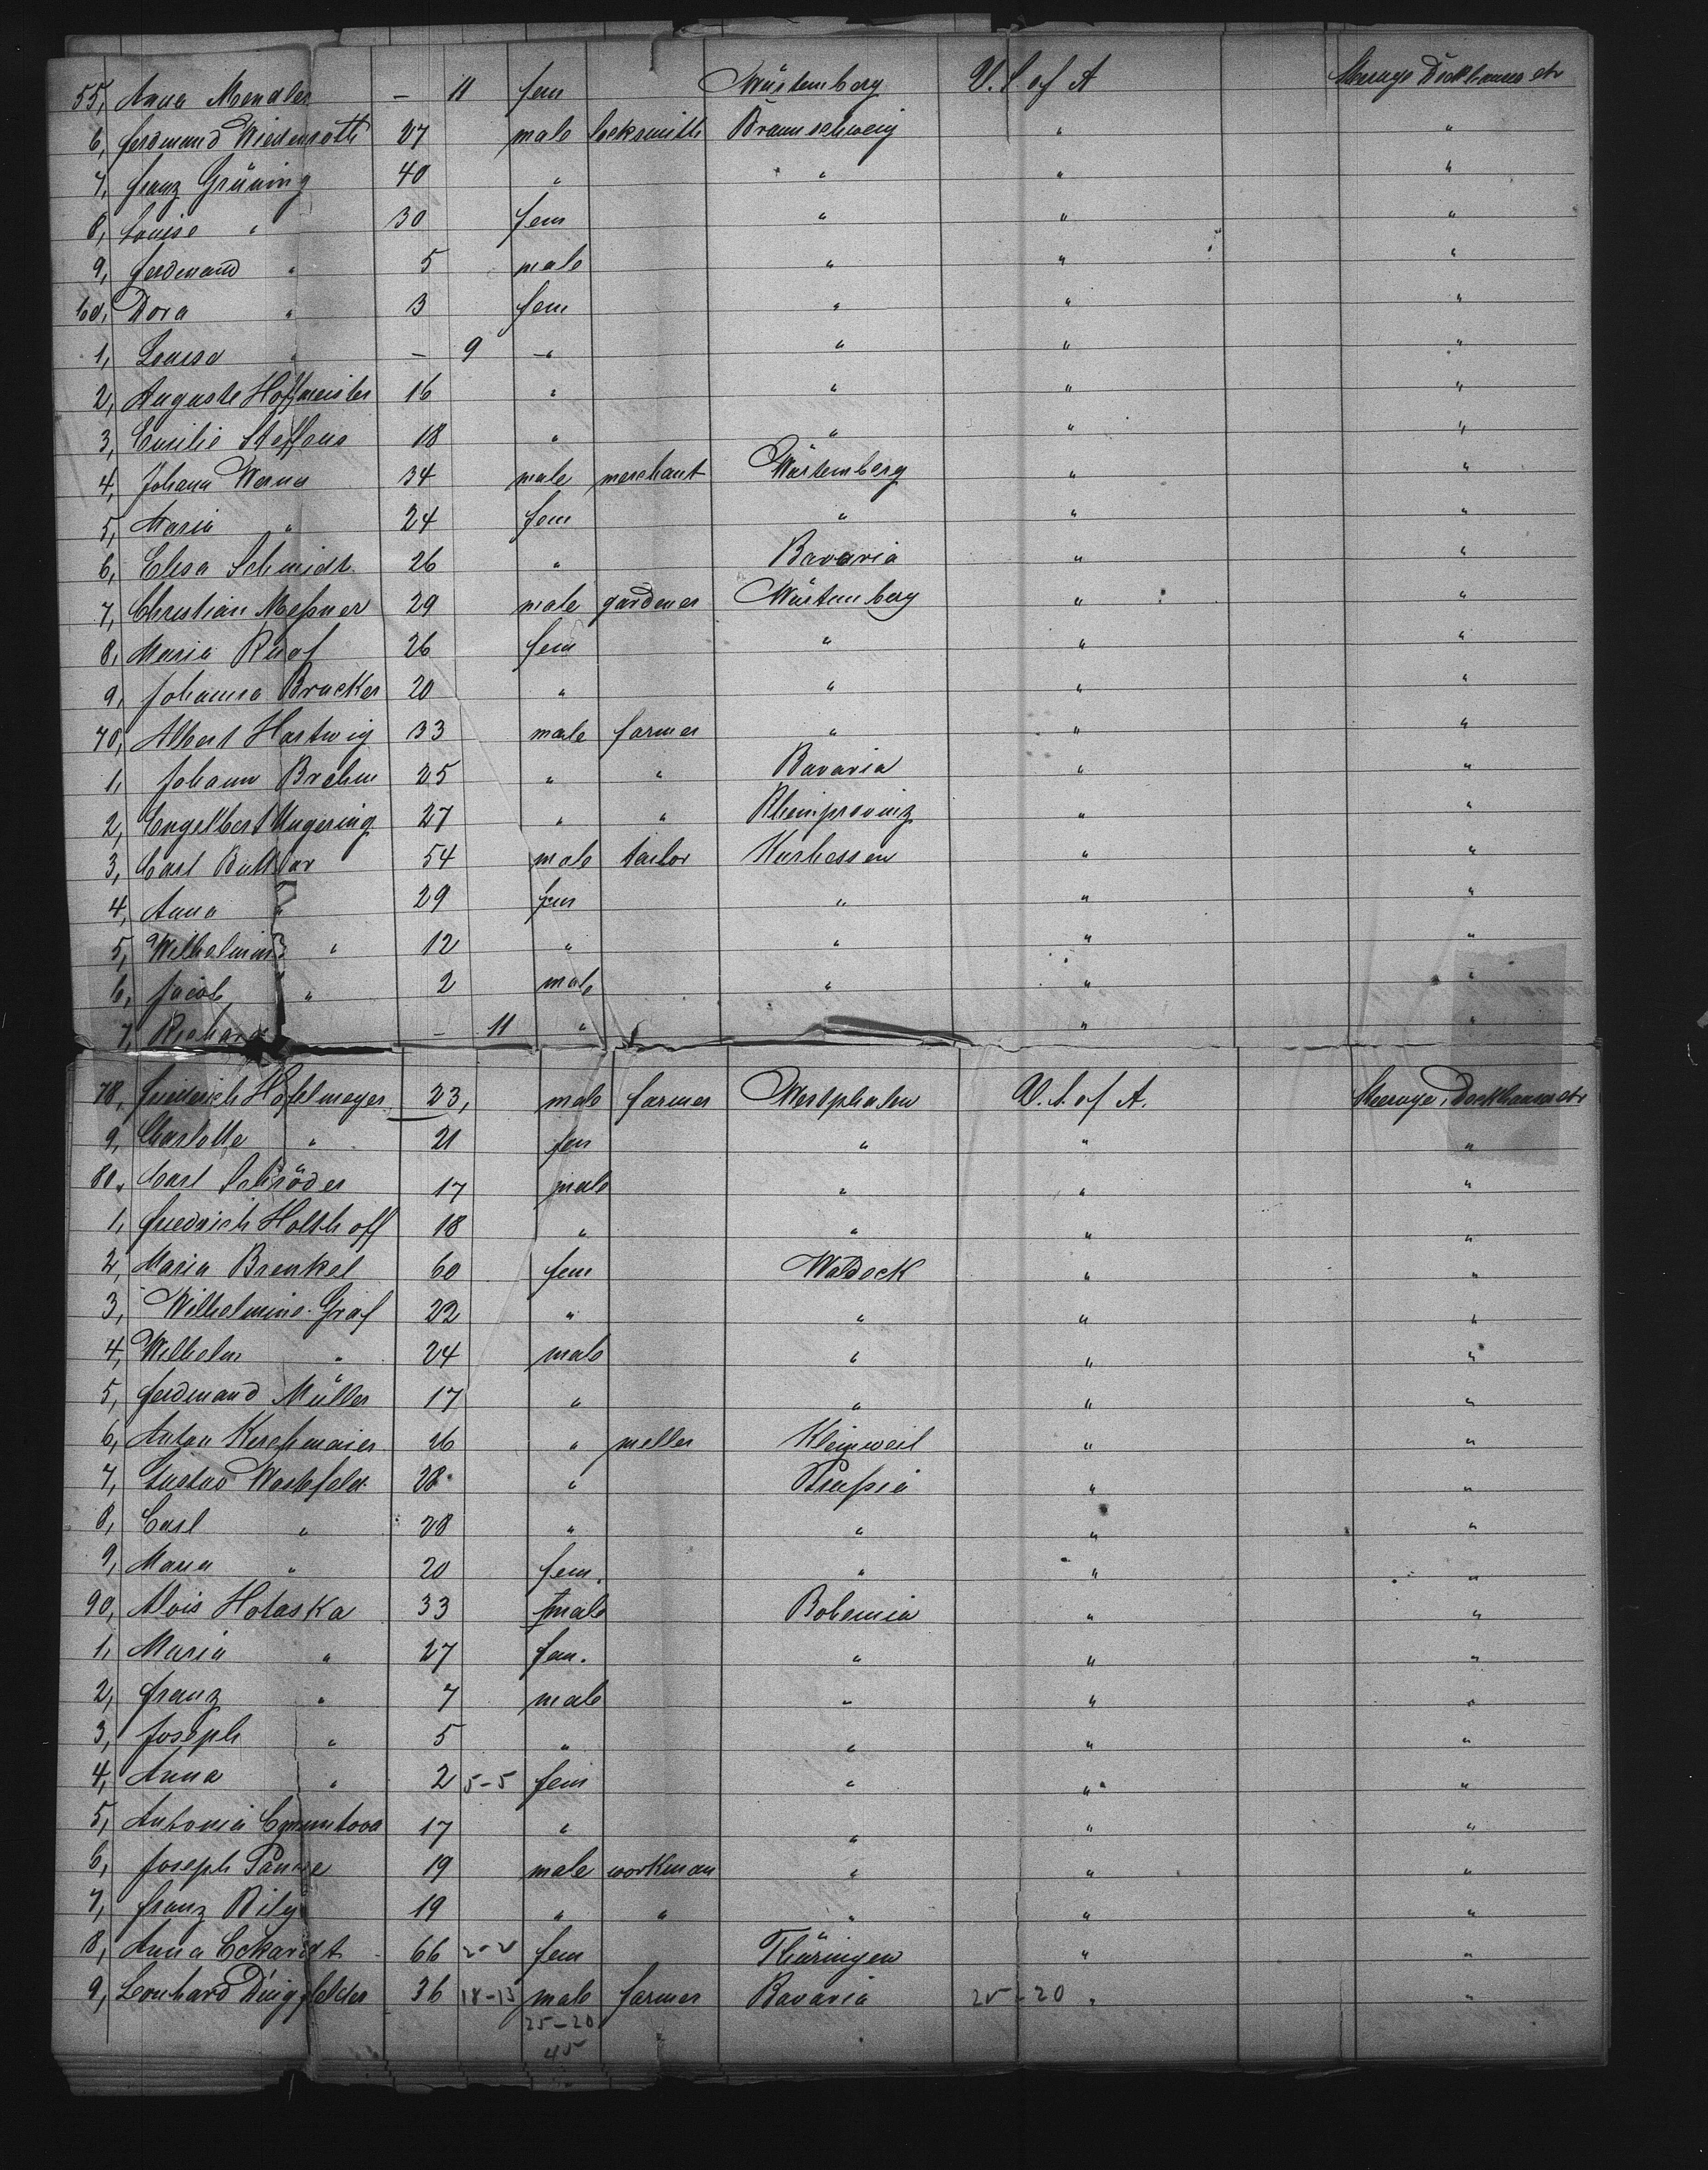 55, Anna Mendler — 11 fem Würtemberg U. S. of A Steerage Deckhouse etc
6, Ferdinand Wiedenroth 27 male locksmith Braunschweig " "
7, Franz Grüning 40 " " " "
8, Louise " 30 fem " " "
9, Ferdinand " 5 male " " "
60, Dora " 3 fem " " "
1, Louise " — 9 " " " "
2, Auguste Hoffmeister 16 " " " "
3, Emilie Steffens 18 " " " "
4, Johann Werner 34 male merchant Würtemberg " "
5, Maria " 24 fem " " "
6, Elisa Schmidt 26 " Bavaria " "
7, Christian Meßner 29 male gardener Würtemberg " "
8, Maria Ruof 26 fem " " "
9, Johanna Brucker 20 " " " "
70, Albert Hartwig 33 male farmer " " "
1, Johann Brehm 25 " " Bavaria " "
2, Engelbert Ungering 27 " " Rheinprovinz " "
3, Carl Buttlar 54 male tailor Kurhessen " "
4, Anna " 29 fem " " "
5, Wilhelmine " 12 " " " "
6, Jacob " 2 male " " "
7, Richard — 11 " " "
78, Friederich Hofelmeyer 23, male farmer Westphalen U. S. of A. Steerage, Deckhouse etc
9, Charlotte " 21 fem " " "
80, Carl Schröder 17 male " " "
1, Friedrich Holthoff 18 " " " "
2, Maria Brenkel 60 fem Waldeck " "
3, Wilhelmine Gräf 22 " " " "
4, Wilhelm " 24 male " " "
5, Ferdinand Müller 17 " " " "
6, Anton Kirchmaier 26 " miller Kleinweil " "
7, Gustav Westefeld 28 " Preußia " "
8, Carl " 28 " " " "
9, Maria " 20 fem. " " "
90, Alois Hotaska 33 male Bohemia " "
1, Maria " 27 fem. " " "
2, Franz " 7 male " " "
3, Joseph " 5 " " " "
4, Anna " 2 5-5 fem " " "
5, Antonia 17 " " " "
6, Joseph 19 male workman " " "
7, Franz Bily 19 " " " " "
8, Anna Eckardt 66 2-2 fem Thüringen " "
9, Leonhard Dingfelder 36 18-15 male farmer Bavaria 25-20 " "
25-20
45